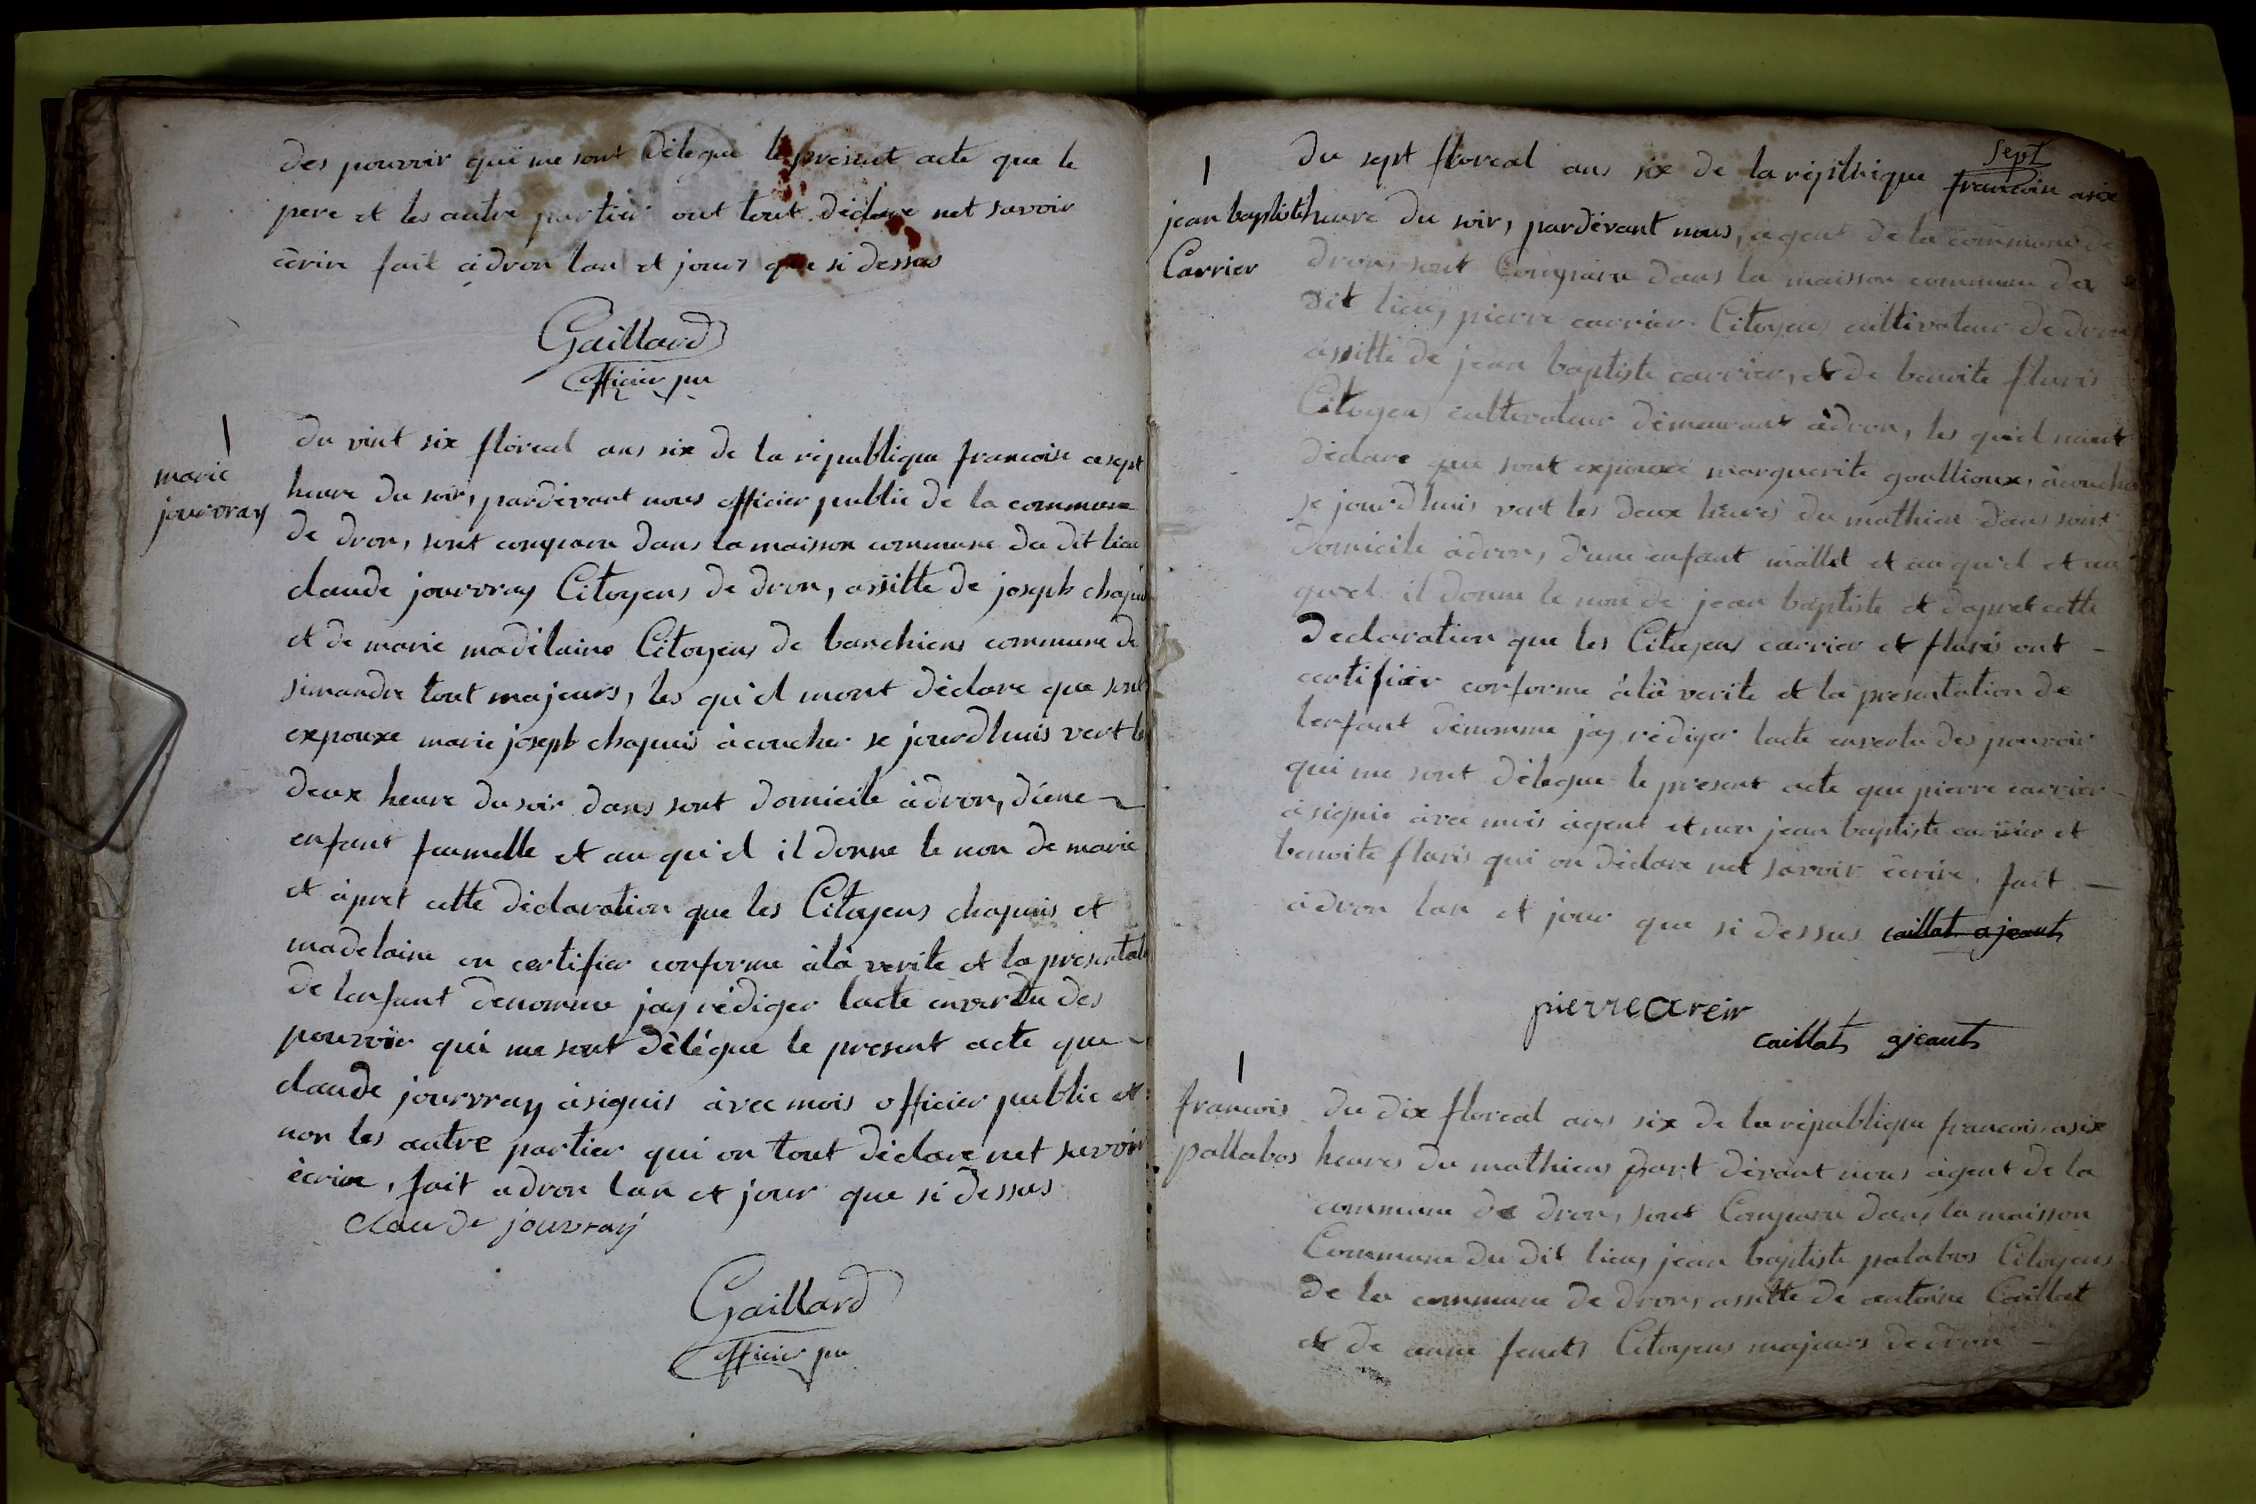 des pouvoir qui me sont délegue le present acte que le
pere et les autre partier ont tout déclare net savoir
ècrire fait à dron lan et jour que si dessus
Gaillard
officier pu
marie
jourvray
du vint six flóreal ans six de la republique francoise a sept
heure du soir, pardèvant nous officier public de la commune
de dron, sont conparu dans la maison commune du dit lieu
claude jourvray Citoyens de dron, assitte de joseph chapuis
et de marie madélaine Citoyens de banchiens commune de
simandre tout majeurs, les qu'el mont déclare que sont
expouxe marie joseph chapuis àcoucher se jourdhuis vert le
deux heure du soir dans sont domicile à dron, d'ene
enfant feumelle et au qu'el il donne le non de marie
et àpret cette déclaration que les Citoyens chapuis et
madelaine on certifier conforme à là verite et la presentat
de lenfant denomme jay rédiger lacte envertu des
pouvoir qui me sont délégue le present acte que
claude jourvray àsignis àvec mois officier public et
non les autre partier qui on tout déclare net savoir
ècrire, fait a dron lan et jour que si dessus
claude jouvray
Gaillard
officier pu
jean baptiste
Carrier
sept
du sept floreal ans six de la repiblique francoise a six
heure du soir, pardèvant nous, agent de la commune de
dron, sont Conparu dans la maisson commune du
dit lieu, pierre carrier Citoyens cultivateur de dron
assitté de jean baptiste carrier, et de benoite fluris
Citoyens cultivateur demeurant àdron, les quel mont
déclare que sont expouxe marguerite goullioux, àcouche
se jourdhuis vert les deux heures du mathien dans sont
domicile àdron, d'une enfant mallet et au qu'el et au
qu'el il donne le non de jean baptiste et dapret cette
declaration que les Citoyens carrier et fluris ont
certifier conforme àlà verite et la presentation de
lenfant dénomme jay rédiger lacte envertu des pouvoir
qui me sont délegue le present acte que pierre carrier
àsignié àvec mois àgent et non jean baptiste carrier et
benoite fluris qui on déclare net sàvoir écrire, fait
àdron lan et jour que si dessus caillat ajeant
pierre careir
caillat ajeant
francois
pallabos
du dix floreal ans six de la république francois a six
heures du mathiens part dévant nous àgent de la
commune de dron, sont Conparu dans la maisson
Commune du dit lieu, jean baptiste palabos Citoyens
de la commune de dron, assitte de antoine Caillat
et de anne Citoyens majeurs de dron